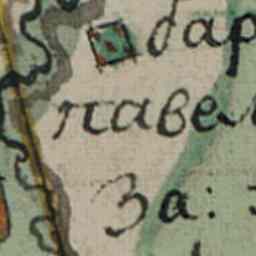 бар
паве
За: